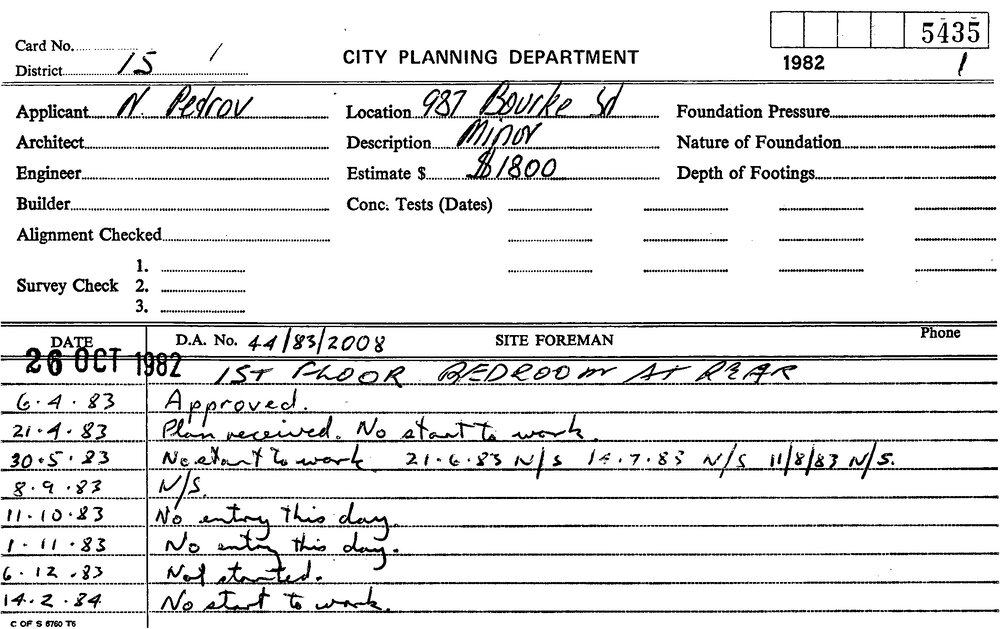 5435
Card No.
District 15 /
CITY PLANNING DEPARTMENT
1982 1
Applicant N. Pedrov Location 987 Bourke Sd Foundation Pressure
Architect Description Minor Nature of Foundation
Engineer Estimate $ $1800 Depth of Footings
Builder Conc. Tests (Dates)
Alignment Checked
1.
Survey Check 2.
3.
DATE D.A. No. 44/83/2008 SITE FOREMAN Phone
26 OCT 1982 1ST FLOOR BEDROOM AT REAR
6.4.83 Approved.
21.4.83 Plan received. No start to work.
30.5.83 No start to work 21.6.83 N/S 14.7.83 N/S 11/8/83 N/S.
8.9.83 N/S.
11.10.83 No entry this day.
1.11.83 No entry this day.
6.12.83 Not started.
14.2.84 No start to work.
C OF S 6760 T6